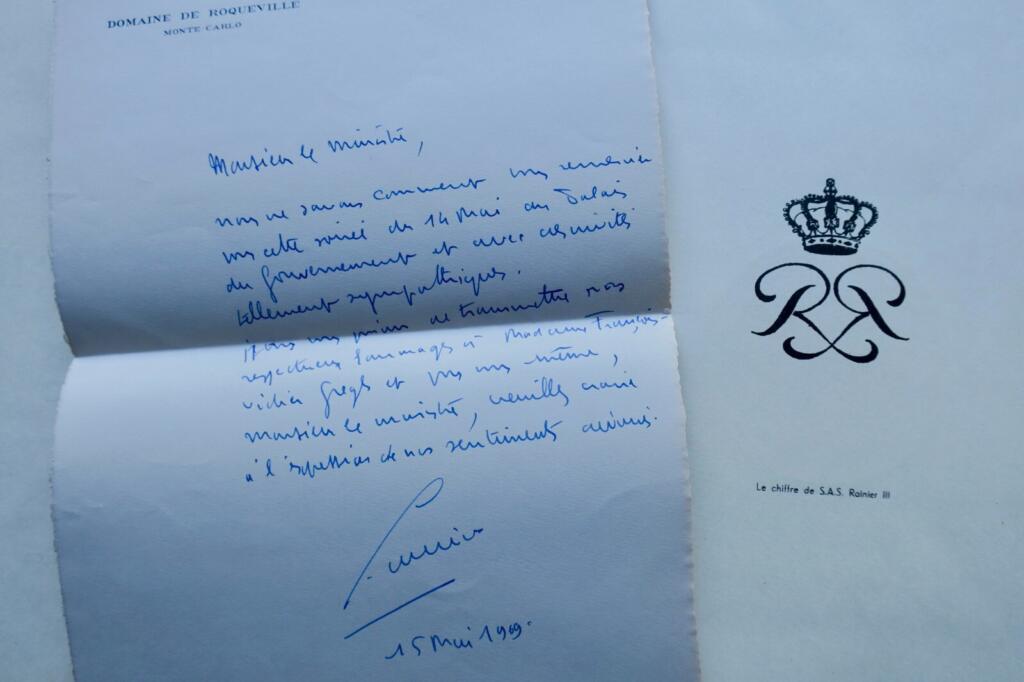 DOMAINE DE ROQUEVILLE
MONTE CARLO
Monsieur le ministre,
nous ne savons comment vous remercier
cette soirée du 14 Mai au Palais
du Gouvernement et avec des invités
tellement sympathiques.
de transmettre nos
respectueux hommages à Madame François-
Didier Gregh et vous même,
Monsieur le ministre, veuillez croire
à l'expression de nos sentiments dévoués.
15 Mai 1969.
Le chiffre de S.A.S. Rainier III